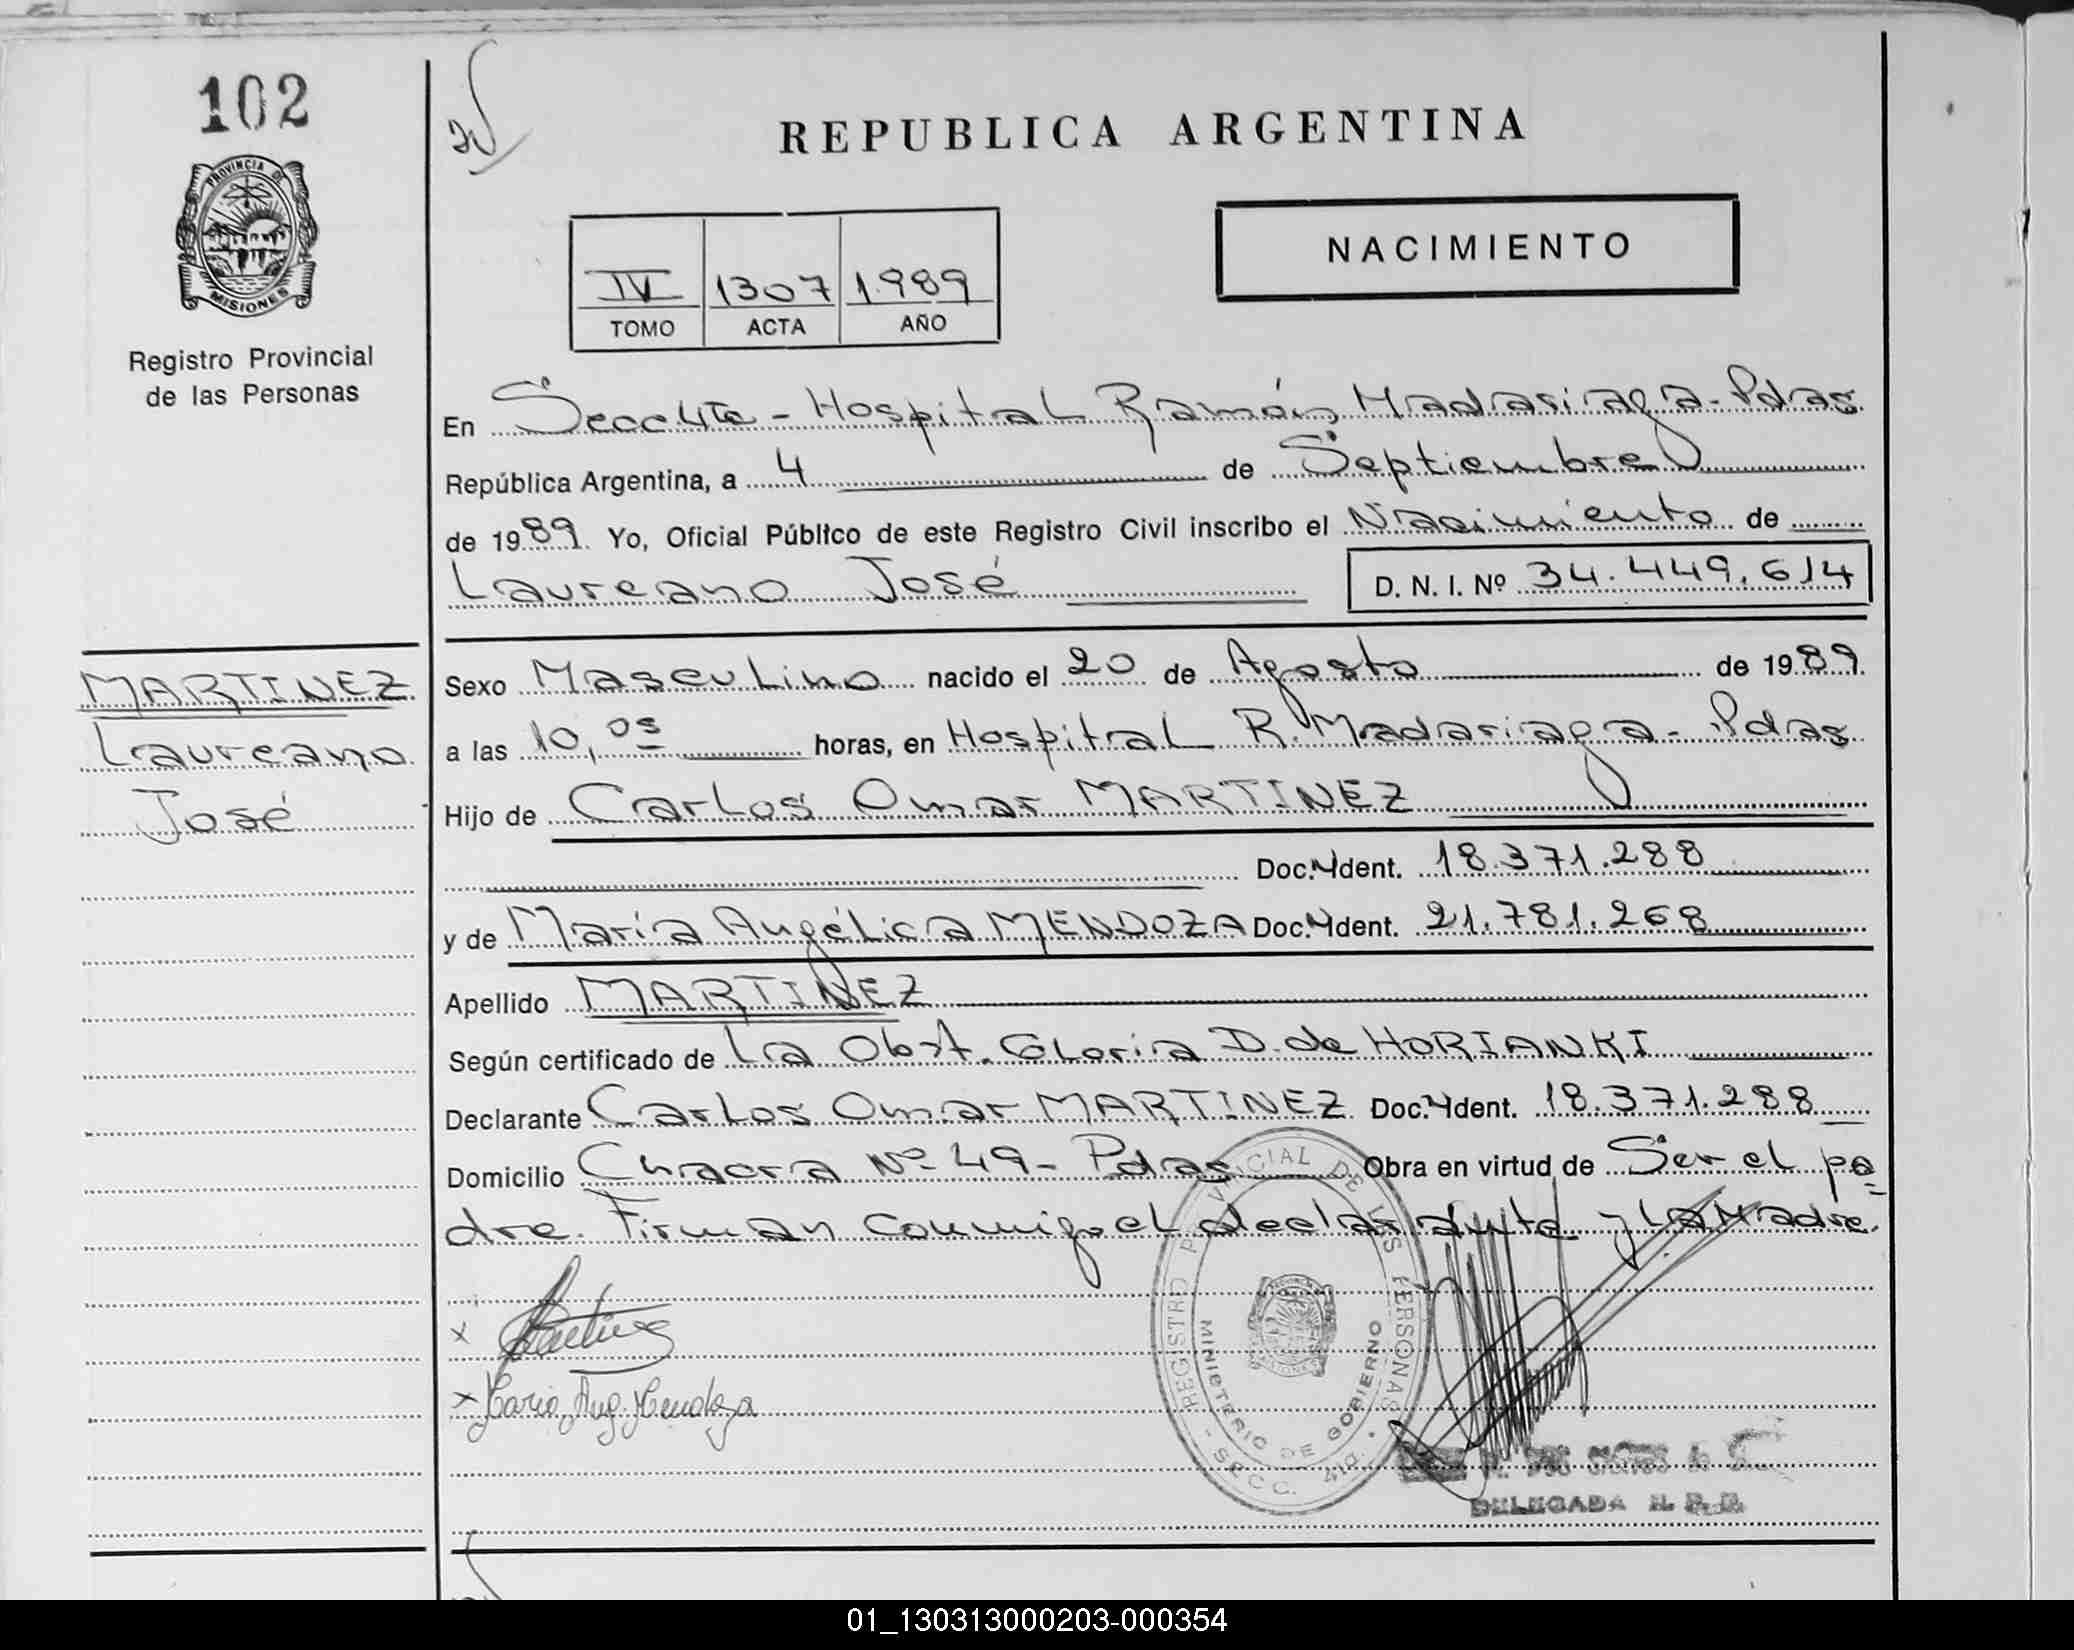 102
PROVINCIA DE
MISIONES
Registro Provincial
de las Personas
MARTINEZ
Laureano
José
REPUBLICA ARGENTINA
NACIMIENTO
IV 1307 1989
TOMO ACTA AÑO
En Secc 4ta - Hospital Ramón Madariaga - Pdas
República Argentina, a 4 de Septiembre
de 1989. Yo, Oficial Público de este Registro Civil inscribo el Nacimiento de
Laureano José D. N. I. Nº 34.449.614
Sexo Masculino nacido el 20 de Agosto de 1989.
a las 10,05 horas, en Hospital R. Madariaga - Pdas
Hijo de Carlos Omar MARTINEZ
Doc. Ident. 18.371.288
y de María Angélica MENDOZA Doc. Ident. 21.781.268
Apellido MARTINEZ
Según certificado de La Obst. Gloria D. de HORIANKI
Declarante Carlos Omar MARTINEZ Doc. Ident. 18.371.288
Domicilio Chacra Nº 49 - Pdas Obra en virtud de Ser el pa=
dre. Firman conmigo el declarante y la Madre.
x
x Maria Ang. Mendoza
REGISTRO PROVINCIAL DE LAS PERSONAS
MINISTERIO DE GOBIERNO
- SECC. 4ta. -
DELEGADA
01_130313000203-000354